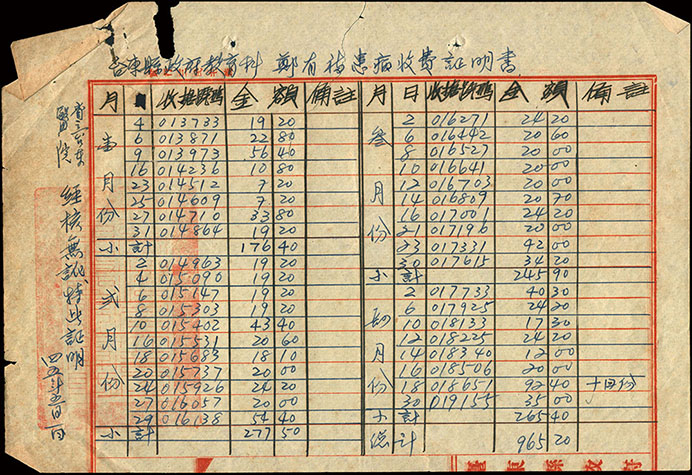 縣政府教育科 鄭有梅患病收費証明書
月 日 收據號碼 金額 備註
壹月份
4 013733 19 20
6 013871 22 80
9 013973 56 40
16 014236 10 80
23 014512 7 20
25 014609 7 20
27 014710 33 80
31 014864 19 20
小計 176 40
弍月份
2 014963 19 20
4 015090 19 20
6 015147 19 20
8 015303 19 20
10 015402 43 40
16 015531 20 60
18 015683 18 10
20 015737 20 00
24 015926 24 20
27 016057 20 00
29 016138 54 40
小計 277 50
月 日 收據號碼 金額 備註
叁月份
2 016271 24 20
6 016442 20 60
8 016527 20 00
10 016641 20 00
12 016703 20 00
14 016809 20 70
16 017001 24 20
21 017196 20 00
23 017331 42 00
30 017615 34 20
小計 245 90
月份
2 017733 40 30
6 017925 24 20
10 018133 17 30
12 018225 24 20
14 018340 12 00
16 018506 20 00
18 018651 92 40 十四份
30 019155 35 00
小計 265 40
總計 965 20
醫院
經核無訛特此証明